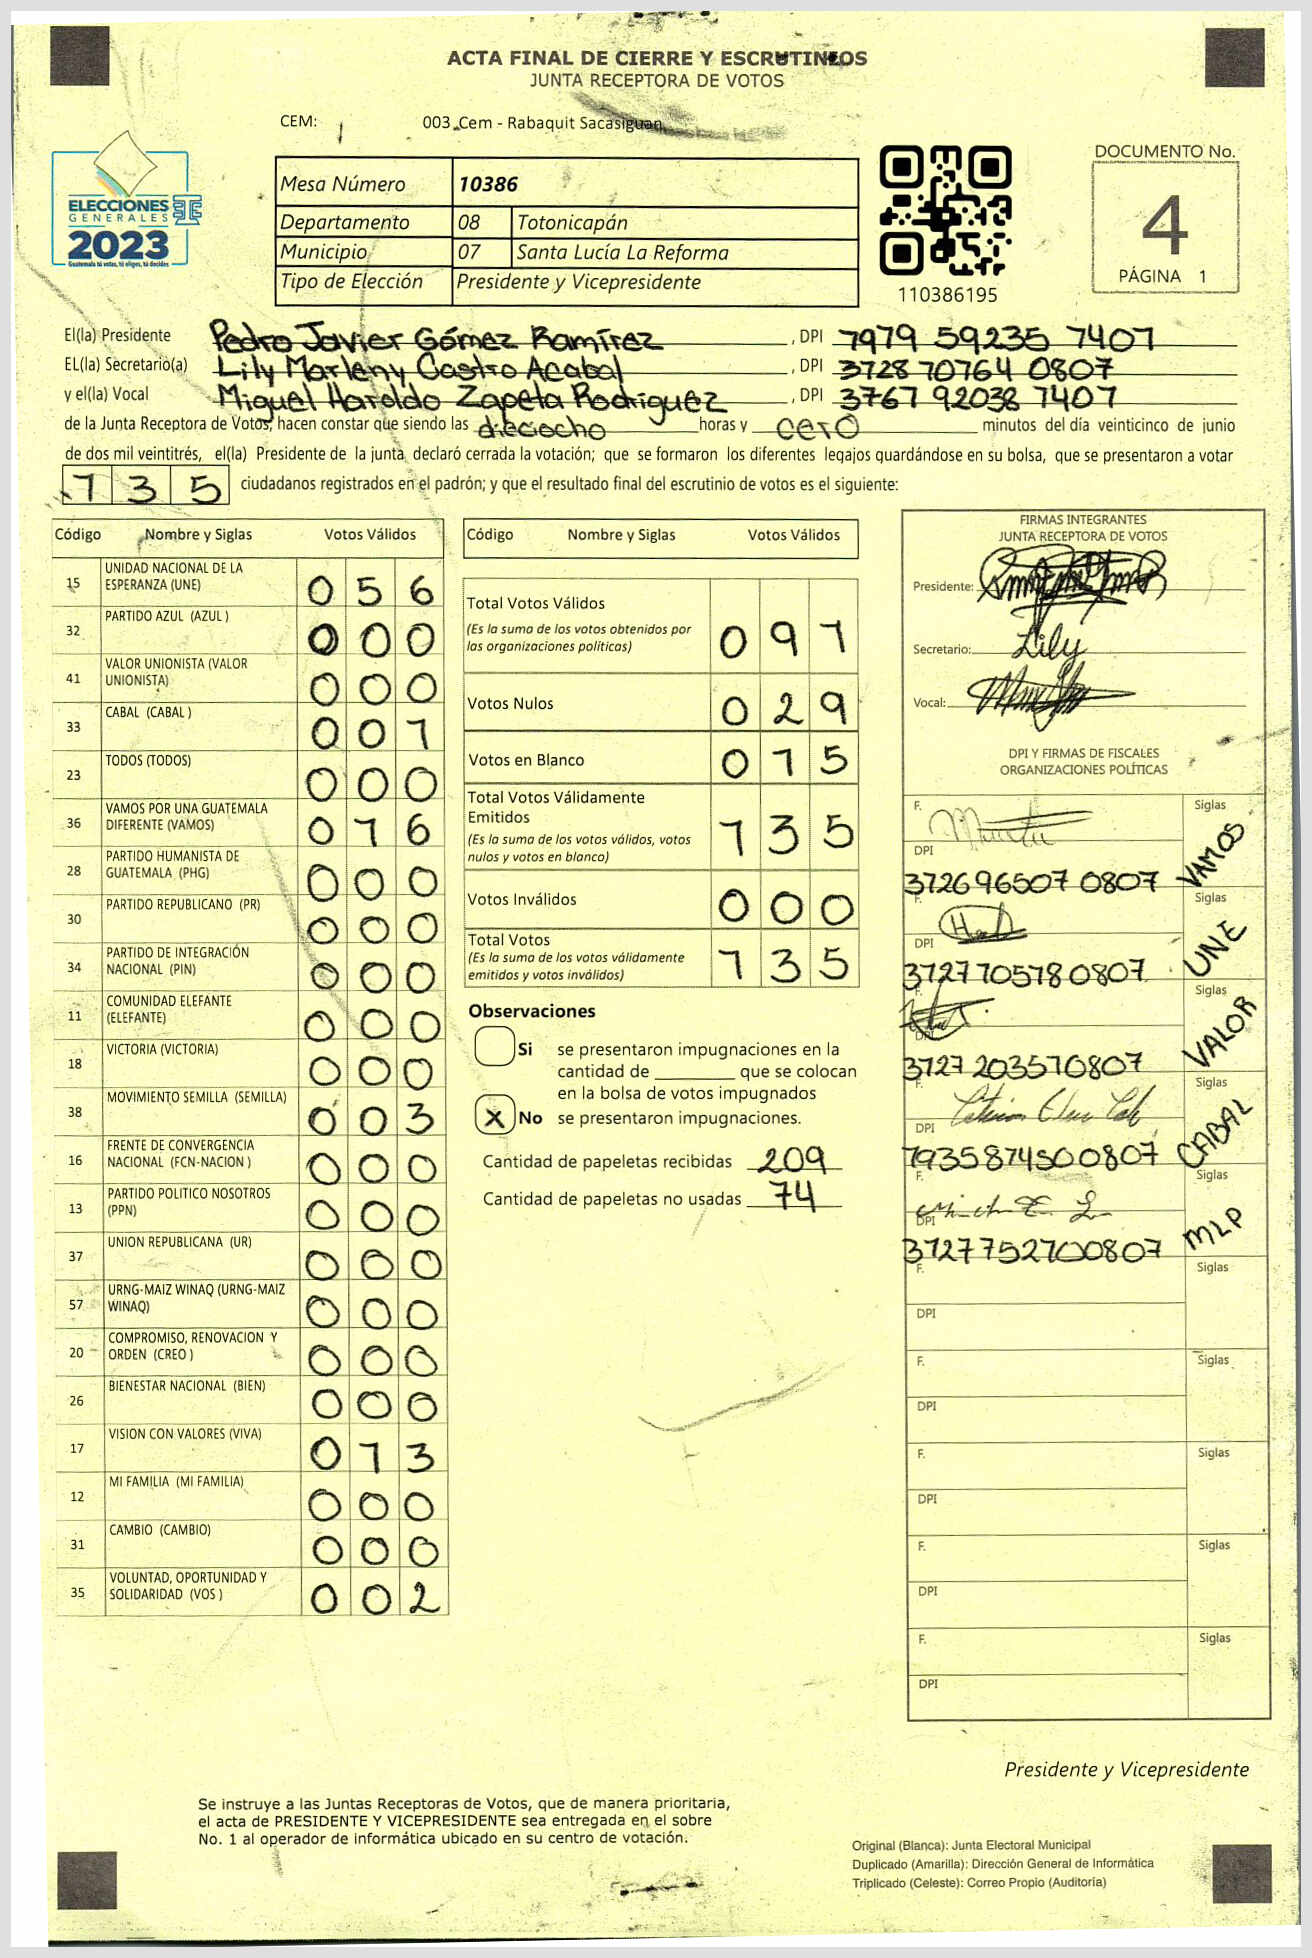 ACTA FINAL DE CIERRE Y ESCRUTINEOS
JUNTA RECEPTORA DE VOTOS
CEM: 003 Cem - Rabaquit Sacasiguan
ELECCIONES
GENERALES
2023
Guatemala tú votas, tú eliges, tú decides
Mesa Número 10386
Departamento 08 Totonicapán
Municipio 07 Santa Lucía La Reforma
Tipo de Elección Presidente y Vicepresidente
110386195
DOCUMENTO No.
4
PÁGINA 1
El(la) Presidente Pedro Javier Gómez Ramírez, DPI 1919 59235 1407
EL(la) Secretario(a) Lily Marleny Castro Acabal, DPI 3128 10164 0807
y el(la) Vocal Miguel Haroldo Zapeta Rodríguez, DPI 3761 92038 1407
de la Junta Receptora de Votos, hacen constar que siendo las dieciocho horas y cero minutos del día veinticinco de junio
de dos mil veintitrés, el(la) Presidente de la junta declaró cerrada la votación; que se formaron los diferentes legajos guardándose en su bolsa, que se presentaron a votar
135 ciudadanos registrados en el padrón; y que el resultado final del escrutinio de votos es el siguiente:
Código Nombre y Siglas Votos Válidos
15 UNIDAD NACIONAL DE LA ESPERANZA (UNE) 056
32 PARTIDO AZUL (AZUL ) 000
41 VALOR UNIONISTA (VALOR UNIONISTA) 000
33 CABAL (CABAL ) 001
23 TODOS (TODOS) 000
36 VAMOS POR UNA GUATEMALA DIFERENTE (VAMOS) 016
28 PARTIDO HUMANISTA DE GUATEMALA (PHG) 000
30 PARTIDO REPUBLICANO (PR) 000
34 PARTIDO DE INTEGRACIÓN NACIONAL (PIN) 000
11 COMUNIDAD ELEFANTE (ELEFANTE) 000
18 VICTORIA (VICTORIA) 000
38 MOVIMIENTO SEMILLA (SEMILLA) 003
16 FRENTE DE CONVERGENCIA NACIONAL (FCN-NACION ) 000
13 PARTIDO POLITICO NOSOTROS (PPN) 000
37 UNION REPUBLICANA (UR) 000
57 URNG-MAIZ WINAQ (URNG-MAIZ WINAQ) 000
20 COMPROMISO, RENOVACION Y ORDEN (CREO ) 000
26 BIENESTAR NACIONAL (BIEN) 000
17 VISION CON VALORES (VIVA) 013
12 MI FAMILIA (MI FAMILIA) 000
31 CAMBIO (CAMBIO) 000
35 VOLUNTAD, OPORTUNIDAD Y SOLIDARIDAD (VOS ) 002
Código Nombre y Siglas Votos Válidos
Total Votos Válidos 091
(Es la suma de los votos obtenidos por
las organizaciones políticas)
Votos Nulos 029
Votos en Blanco 015
Total Votos Válidamente
Emitidos 135
(Es la suma de los votos válidos, votos
nulos y votos en blanco)
Votos Inválidos 000
Total Votos 135
(Es la suma de los votos válidamente
emitidos y votos inválidos)
Observaciones
Si se presentaron impugnaciones en la
cantidad de ________ que se colocan
en la bolsa de votos impugnados
X No se presentaron impugnaciones.
Cantidad de papeletas recibidas 209
Cantidad de papeletas no usadas 74
FIRMAS INTEGRANTES
JUNTA RECEPTORA DE VOTOS
Presidente:
Secretario: Lily
Vocal:
DPI Y FIRMAS DE FISCALES
ORGANIZACIONES POLÍTICAS
F. Siglas
DPI
312696507 0807 VAMOS
F. Siglas
DPI
3127105180807 UNE
F. Siglas
DPI
3127 203510807 VALOR
F. Siglas
DPI
1935814500807 CABAL
F. Siglas
DPI
3127752100807 MLP
F. Siglas
DPI
F. Siglas
DPI
F. Siglas
DPI
F. Siglas
DPI
F. Siglas
DPI
Presidente y Vicepresidente
Se instruye a las Juntas Receptoras de Votos, que de manera prioritaria,
el acta de PRESIDENTE Y VICEPRESIDENTE sea entregada en el sobre
No. 1 al operador de informática ubicado en su centro de votación.
Original (Blanca): Junta Electoral Municipal
Duplicado (Amarilla): Dirección General de Informática
Triplicado (Celeste): Correo Propio (Auditoría)